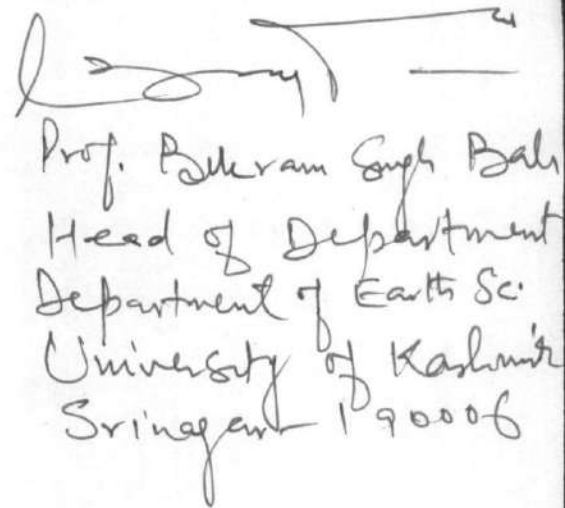 Prof. Bikram Singh Bali
Head of Department
Department of Earth Sc.
University of Kashmir
Srinagar - 190006